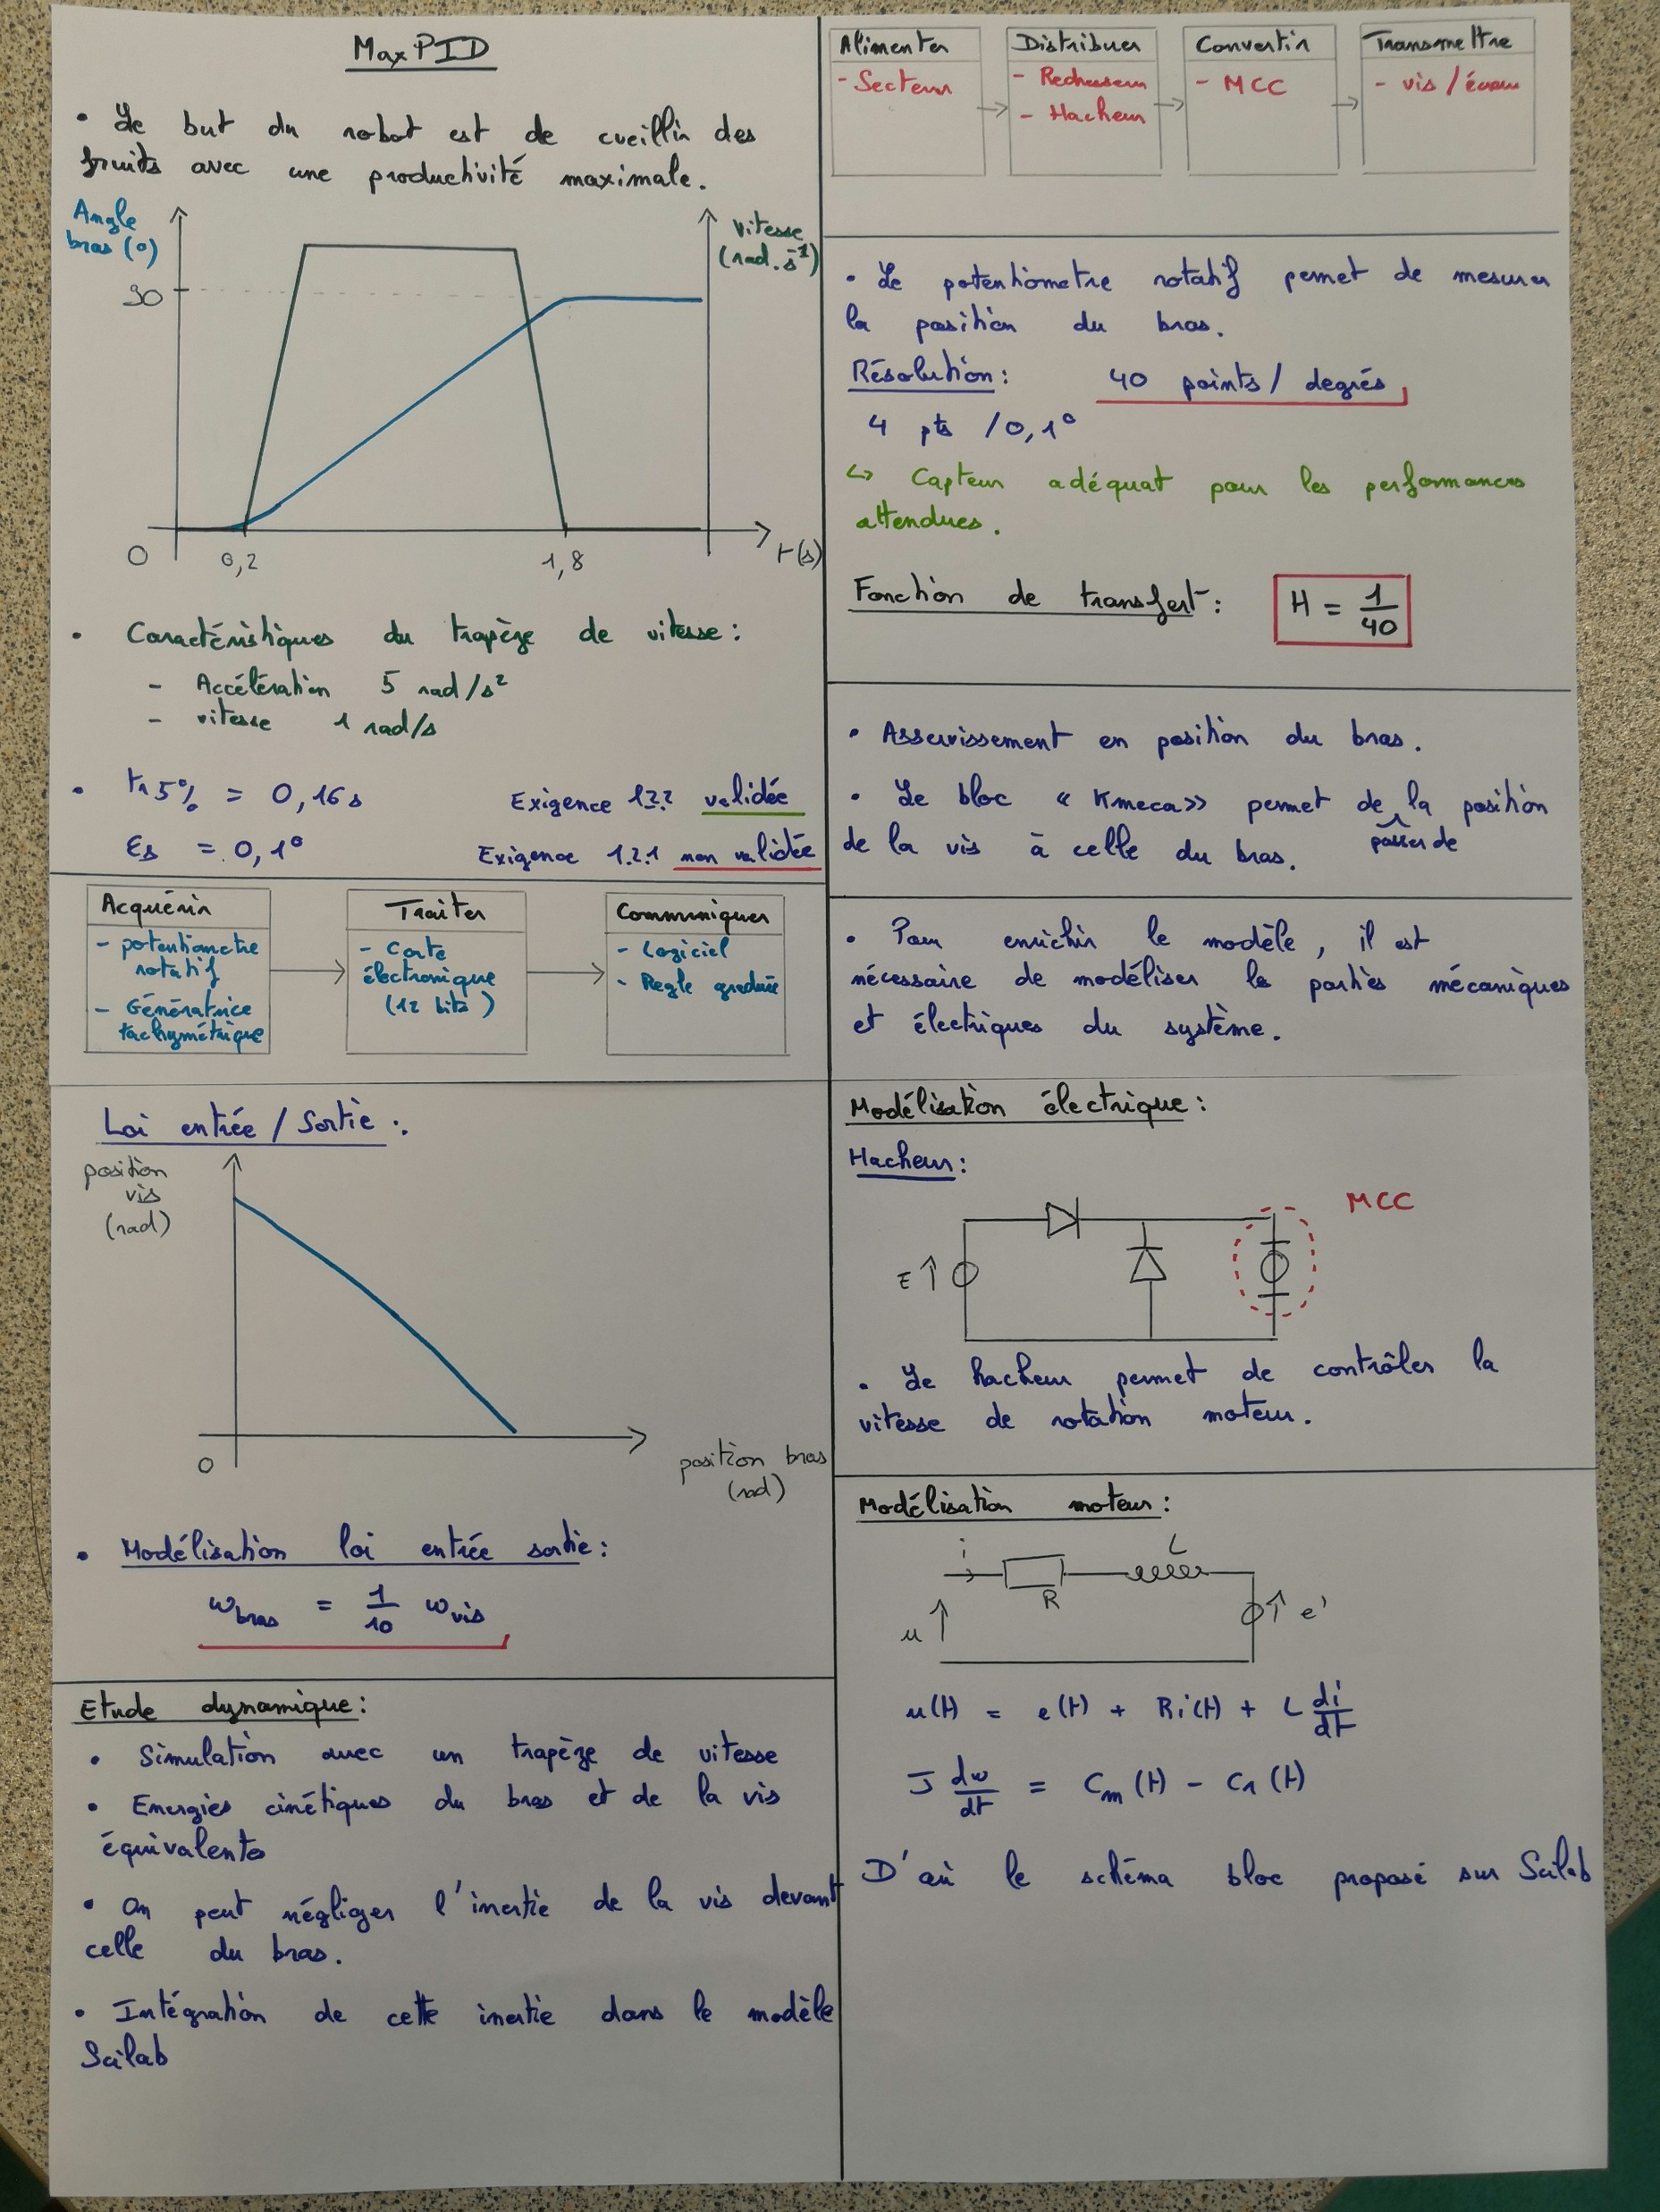 MaxPID
• Le but du robot est de cueillir des
fruits avec une productivité maximale.
Angle
bras (°)
90
Vitesse
(rad.s⁻¹)
0
0,2
1,8
t(s)
• Caractéristiques du trapèze de vitesse :
- Accélération 5 rad/s²
- vitesse 1 rad/s
• tr5% = 0,16s Exigence 1.2.2 validée
εs = 0,1° Exigence 1.2.1 non validée
Acquérir
- potentiometre
rotatif
- Génératrice
tachymétrique
Traiter
- Carte
électronique
(12 bits)
Communiquer
- Logiciel
- Regle graduée
Loi entrée / Sortie :
position
vis
(rad)
0
position bras
(rad)
• Modélisation loi entrée sortie :
ω bras = 1/10 ω vis
Etude dynamique :
• Simulation avec un trapèze de vitesse
• Energies cinétiques du bras et de la vis
équivalents
• On peut négliger l'inertie de la vis devant
celle du bras.
• Intégration de cette inertie dans le modèle
Scilab
Alimenter
- Secteur
Distribuer
- Redresseur
- Hacheur
Convertir
- MCC
Transmettre
- vis / écrou
• Le potentiomètre rotatif permet de mesurer
la position du bras.
Résolution : 40 points / degrés
4 pts / 0,1°
↳ Capteur adéquat pour les performances
attendues.
Fonction de transfert : H = 1/40
• Asservissement en position du bras.
• Le bloc « Kmeca » permet de passer de la position
de la vis à celle du bras.
• Pour enrichir le modèle, il est
nécessaire de modéliser les parties mécaniques
et électriques du système.
Modélisation électrique :
Hacheur :
MCC
E
• Le hacheur permet de contrôler la
vitesse de rotation moteur.
Modélisation moteur :
i
L
R
u
e'
u(t) = e(t) + Ri(t) + L di/dt
J dω/dt = Cm(t) - Cr(t)
D'où le schéma bloc proposé sur Scilab